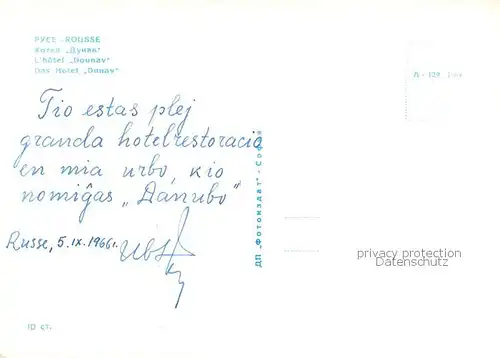 РУСЕ - ROUSSE
Хотел „Дунав"
L'hôtel „Dounav"
Das Hotel „Dunav"
Tio estas plej
granda hotelrestoracio
en mia urbo, kio
nomiĝas „Danubo"
Russe, 5.IX.1966г.
ДП „Фотоиздат" - София
privacy protection
Datenschutz